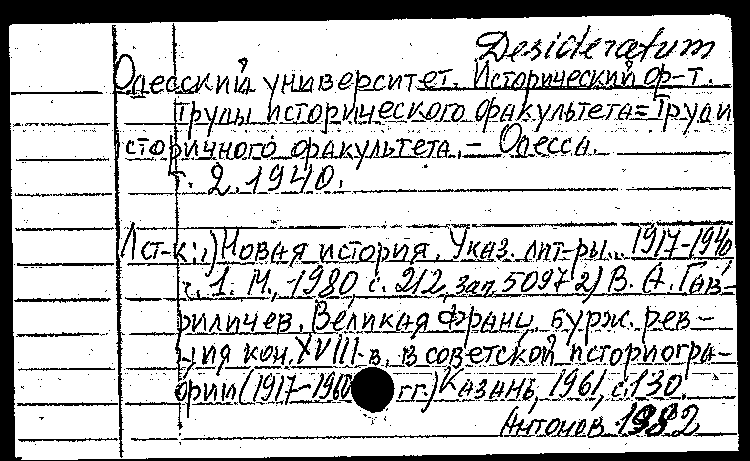 Desideratum
Одесский университет. Исторический ф-т.
Труды исторического факультета = Труди
сторичного факультета. – Одесса.
т. 2. 1940.
Ист-к: 1) Новая история. Указ. лит-ры... 1917–1940
ч. 1. М., 1980, с. 212, зап. 5097 2) В. А. Гав-
риличев. Великая франц. бурж. рев-
ция кон. XVIII в. в советской историогра-
фии (1917–1960 гг.) Казань, 1961, с. 130.
Антонов 1982